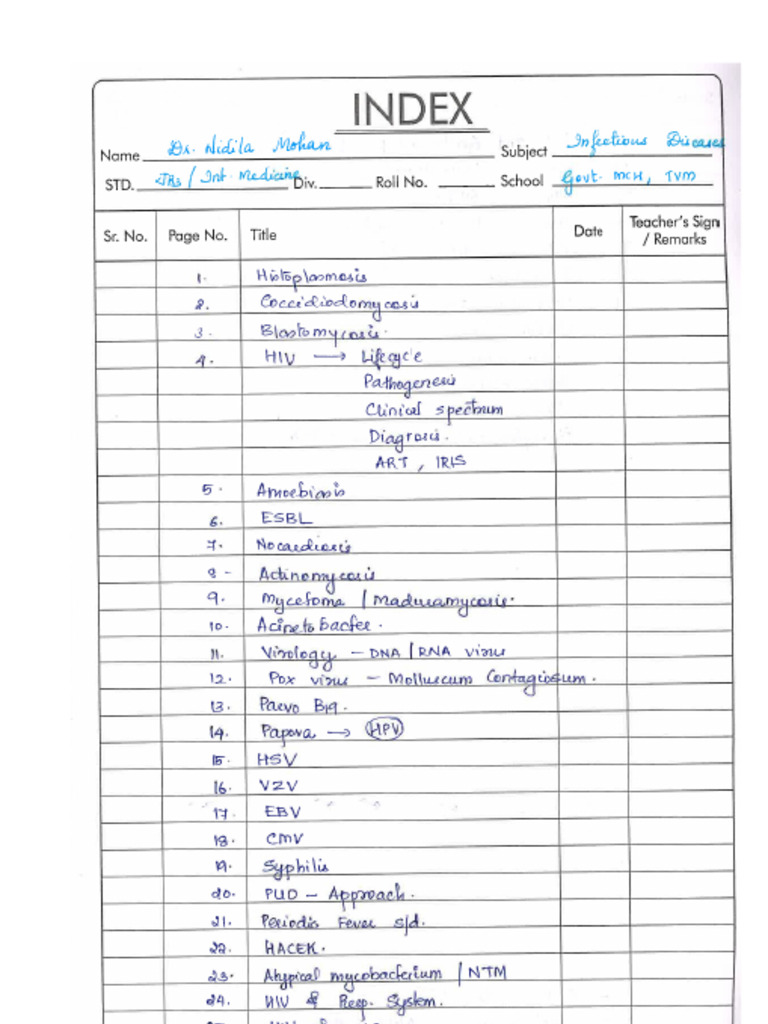 INDEX
Name Dr. Nidila Mohan Subject Infectious Diseases
STD. JR3 / Int. Medicine Div. Roll No. School Govt. MCH, TVM
Sr. No. Page No. Title Date Teacher's Sign / Remarks
1. Histoplasmosis
2. Coccidiodomycosis
3. Blastomycosis.
4. HIV → Lifecycle
Pathogenesis
Clinical spectrum
Diagnosis.
ART, IRIS
5. Amoebiasis
6. ESBL
7. Nocardiosis
8 - Actinomycosis
9. Mycetoma / Maduramycosis.
10. Acinetobacter.
11. Virology - DNA / RNA virus
12. Pox virus - Molluscum Contagiosum.
13. Parvo B19.
14. Papova → HPV
15. HSV
16. VZV
17. EBV
18. CMV
19. Syphilis
20. PUO - Approach.
21. Periodic Fever s/d.
22. HACEK.
23. Atypical mycobacterium / NTM
24. HIV & Resp. System.